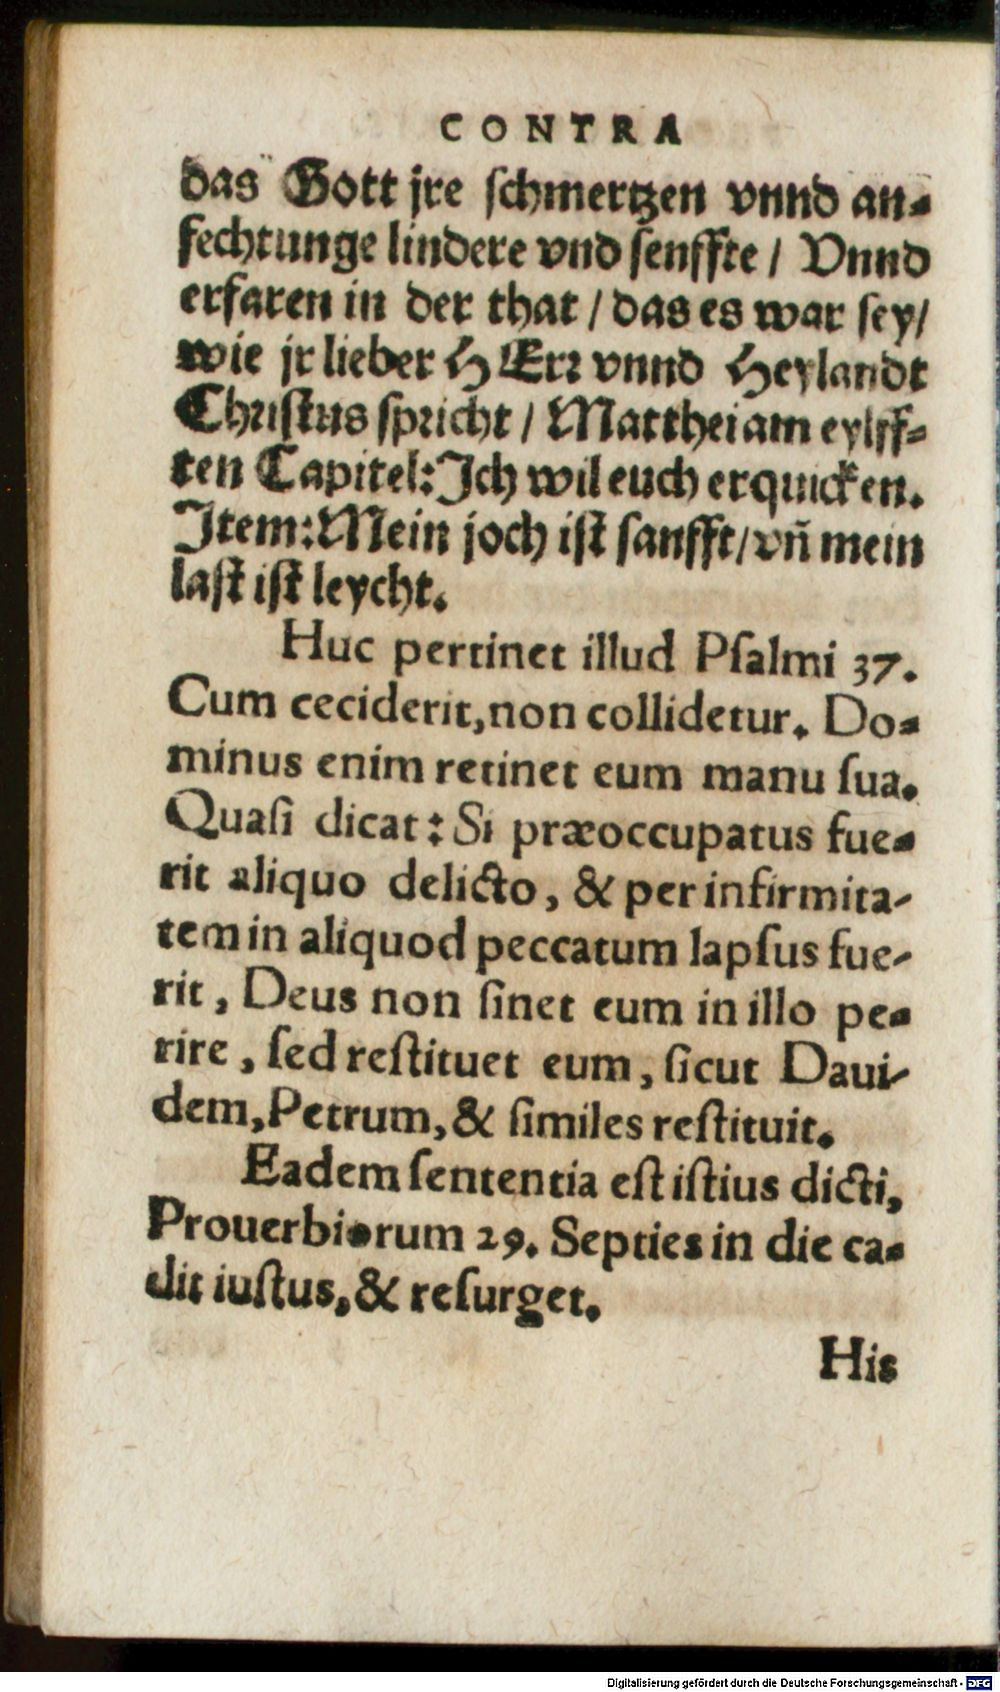 CONTRA
das Gott jre schmertzen vnnd an-
fechtunge lindere vnd senffte / Vnnd
erfaren in der that / das es war sey /
wie jr lieber HErr vnnd Heylandt
Christus spricht / Matthei am eylff-
ten Capitel: Ich wil euch erquicken.
Item: Mein joch ist sanfft / vñ mein
last ist leycht.
Huc pertinet illud Psalmi 37.
Cum ceciderit, non collidetur. Do-
minus enim retinet eum manu sua.
Quasi dicat: Si præoccupatus fue-
rit aliquo delicto, & per infirmita-
tem in aliquod peccatum lapsus fue-
rit, Deus non sinet eum in illo pe-
rire, sed restituet eum, sicut Daui-
dem, Petrum, & similes restituit.
Eadem sententia est istius dicti,
Prouerbiorum 29. Septies in die ca-
dit iustus, & resurget.
His
Digitalisierung gefördert durch die Deutsche Forschungsgemeinschaft - DFG